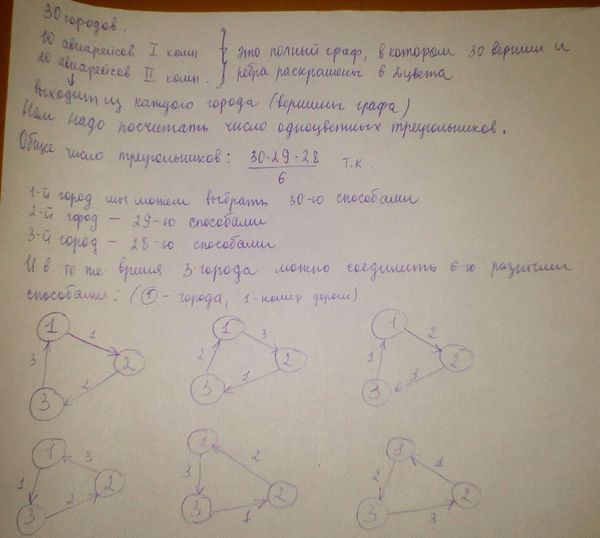 30 городов.
10 авиарейсов I комп } это полный граф, в котором 30 вершин и
20 авиарейсов II комп. } ребра раскрашены в 2 цвета
выходит из каждого города (вершины графа)
Нам надо посчитать число одноцветных треугольников.
Общее число треугольников: 30·29·28 / 6 т.к.
1-й город мы можем выбрать 30-ю способами
2-й город — 29-ю способами
3-й город — 28-ю способами
И в то же время 3 города можно соединить 6-ю разными
способами: (① - города, 1-номер дороги)
1 1 2 2 3 3
1 3 2 1 3 2
1 2 2 3 3 1
1 3 2 2 3 1
1 2 2 1 3 3
1 1 2 3 3 2